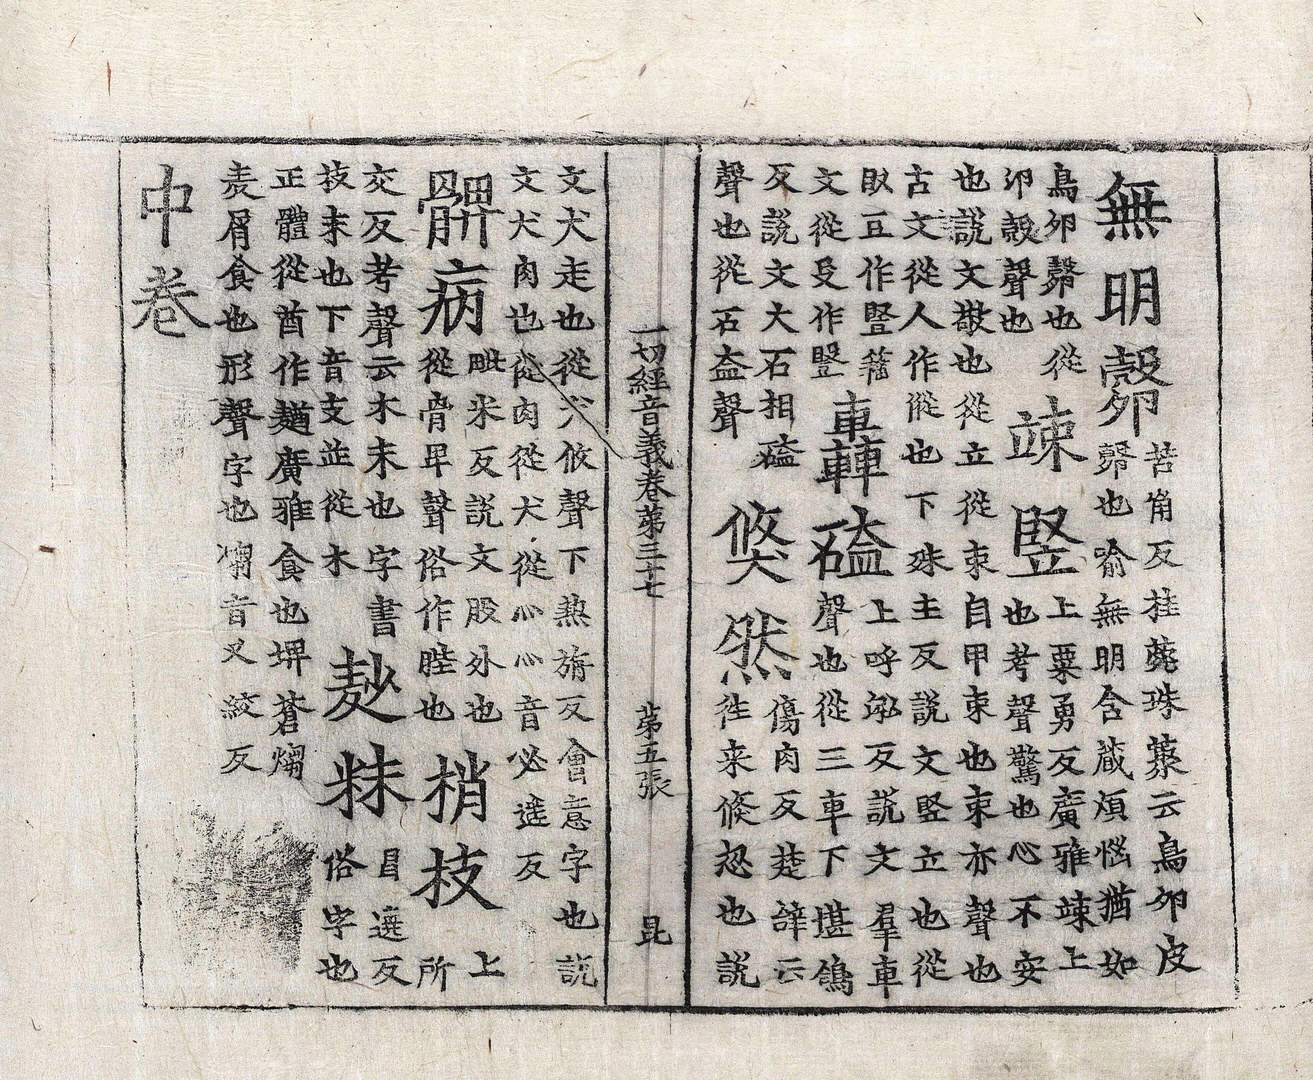 無明㲉卵苦角反桂菀珠叢云鳥卵皮
㲉也喻無明含藏煩惱猶如
鳥卵㲉也從
卵㱿聲也
竦竪上粟勇反廣雅竦上
也考聲驚也心不安
也說文敬也從立從束自申束也束亦聲也
古文從人作㩳也下殊主反說文竪立也從
臤豆作豎籀
文從殳作豎
轟磕上呼泓反說文羣車
聲也從三車下堪鴿
反說文大石相磕
聲也從石盍聲
倐然傷肉反楚辭云
往来倏忽也說
文犬走也從犬攸聲下熱旃反會意字也說
文犬肉也從肉從犬從灬灬音必遥反
髀病毗米反說文股外也
從骨卑聲俗作䏶也
梢枝上所
交反考聲云木末也字書
枝末也下音支並從木
麨䊳昌遶反
俗字也
正體從酋作䴬廣雅食也埤蒼煼
麦屑食也形聲字也煼音叉絞反
中卷
一切經音義卷第三十七 第五張 昆